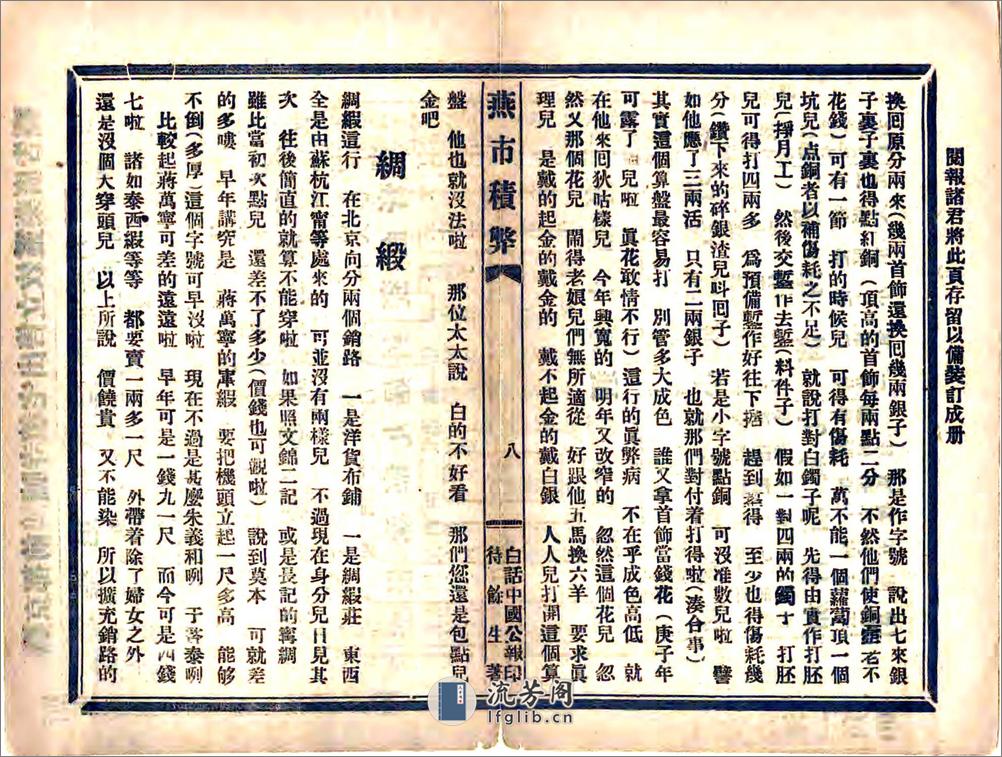 閱報諸君將此頁存留以備裝訂成册
換回原分兩來(幾兩首飾還換回幾兩銀子) 那是作字號 說出七來銀
子裏子裏也得點紅銅(頂高的首飾每兩點二分 不然他們使銅 老不
花錢)可有一節 打的時候兒 可得有傷耗 萬不能一個蘿蔔頂一個
坑兒(点銅者以補傷耗之不足) 就說打對白鐲子呢 先得由實作打胚
兒(掙月工) 然後交鏨作去鏨(料件子) 假如一對四兩的鐲子 打胚
兒可得打四兩多 爲預備鏨作好往下 趕到 得 至少也得傷耗幾
分(鑽下來的碎銀渣兒呌囘子) 若是小字號點銅 可沒准數兒啦 譬
如他應了三兩活 只有二兩銀子 也就那們對付着打得啦(湊合事)
其實這個算盤最容易打 別管多大成色 誰又拿首飾當錢花(庚子年
可露了 兒啦 眞花敢情不行)這行的眞弊病 不在乎成色高低 就
在他來回狄咕樣兒 今年興寬的 明年又改窄的 忽然這個花兒 忽
然又那個花兒 鬧得老娘兒們無所適從 好跟他五馬換六羊 要求眞
理兒 是戴的起金的戴金的 戴不起金的戴白銀 人人兒打開這個算
燕市積弊
八
白話中國公報印
待餘生著
盤 他也就沒法啦 那位太太說 白的不好看 那們您還是包點兒
金吧
綢緞
綢緞這行 在北京向分兩個銷路 一是洋貨布鋪 一是綢緞莊 東西
全是由蘇杭江甯等處來的 可並沒有兩樣兒 不過現在身分兒日見其
次 往後簡直的就算不能穿啦 如果照文錦二記 或是長記的寗綢
雖比當初次點兒 還差不了多少(價錢也可觀啦) 說到莫本 可就差
的多嘍 早年講究是 蔣萬寧的庫緞 要把機頭立起一尺多高 能够
不倒(多厚)這個字號可早沒啦 現在不過是甚麽朱義和咧 于善泰咧
比較起蔣萬寧可差的遠遠啦 早年可是一錢九一尺 而今可是四錢
七啦 諸如泰西緞等等 都要賣一兩多一尺 外帶着除了婦女之外
還是沒個大穿頭兒 以上所說 價饒貴 又不能染 所以擴充銷路的
流芳阁
lfglib.cn